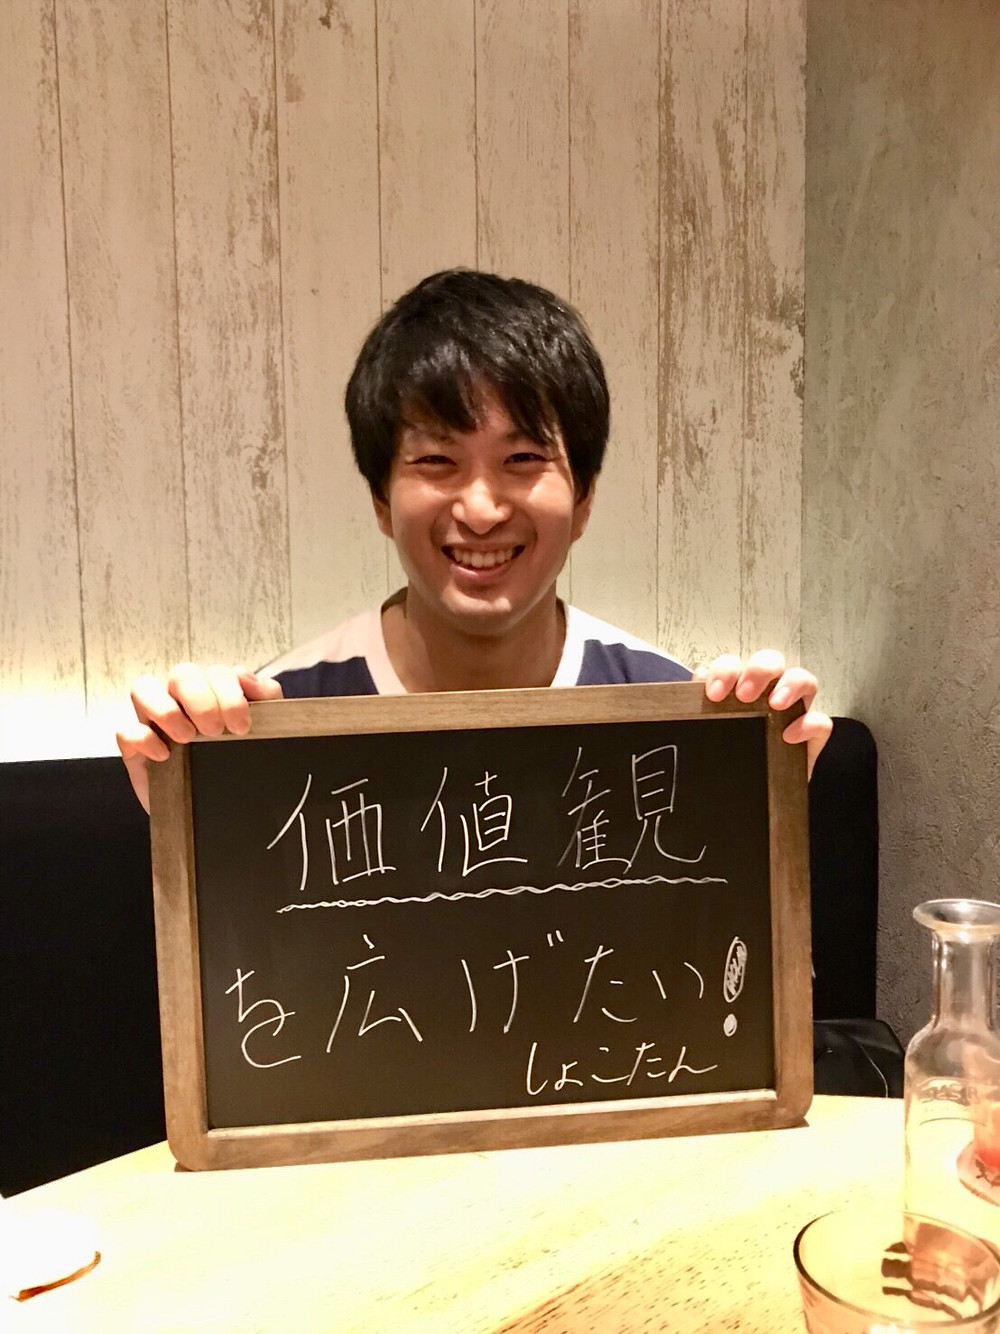 価値観
を広げたい!
しょこたん